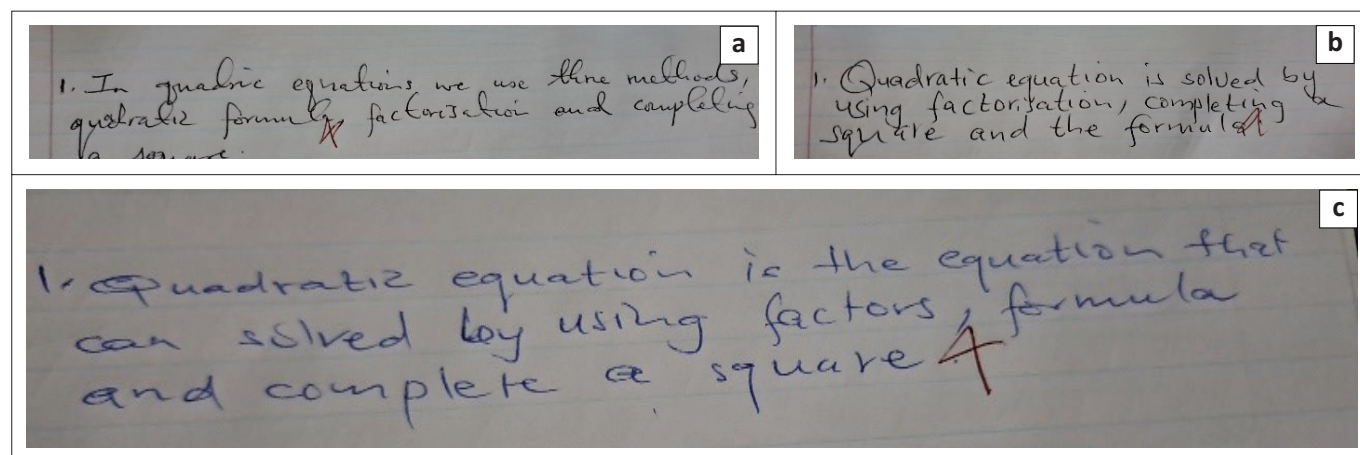 a
1. In quadric equations we use thre methods,
qudratic formula 4 factorisation and completing
a square.
b
1. Quadratic equation is solved by
using factorisation, completing a
square and the formula 4
c
1. Quadratic equation is the equation that
can solved by using factors, formula
and complete a square 4